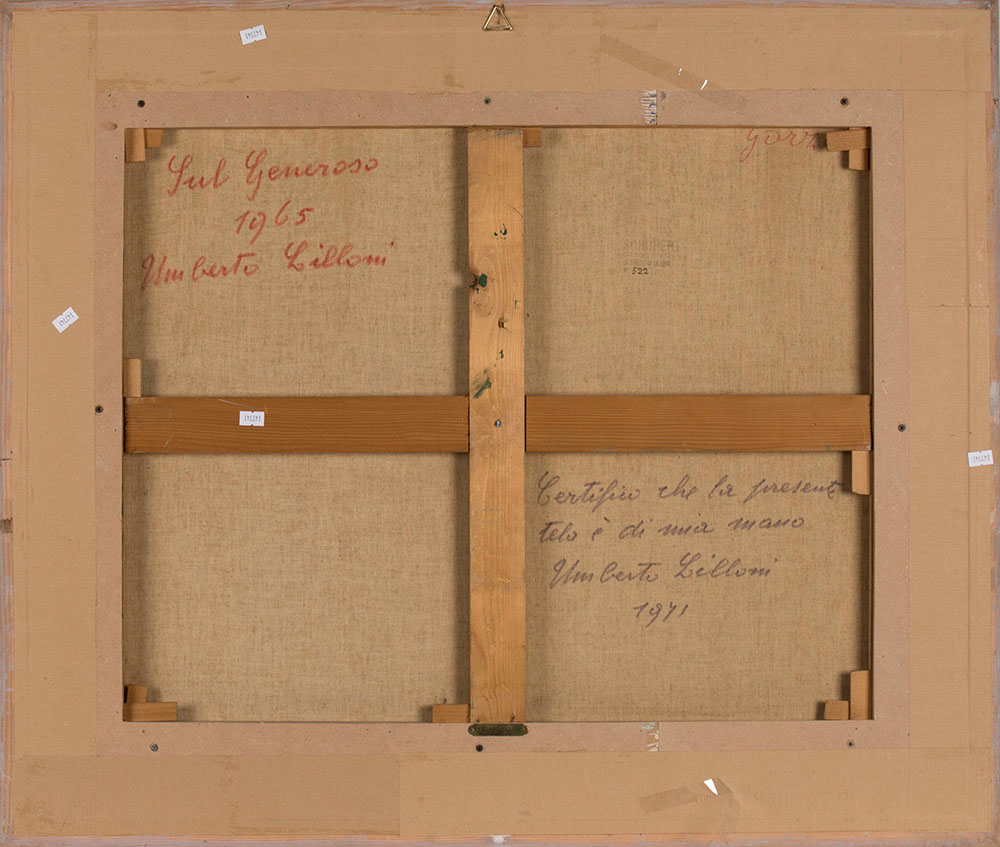 Sul Generoso
1965
Umberto Lilloni
522
Certifico che la presente
tela è di mia mano
Umberto Lilloni
1971